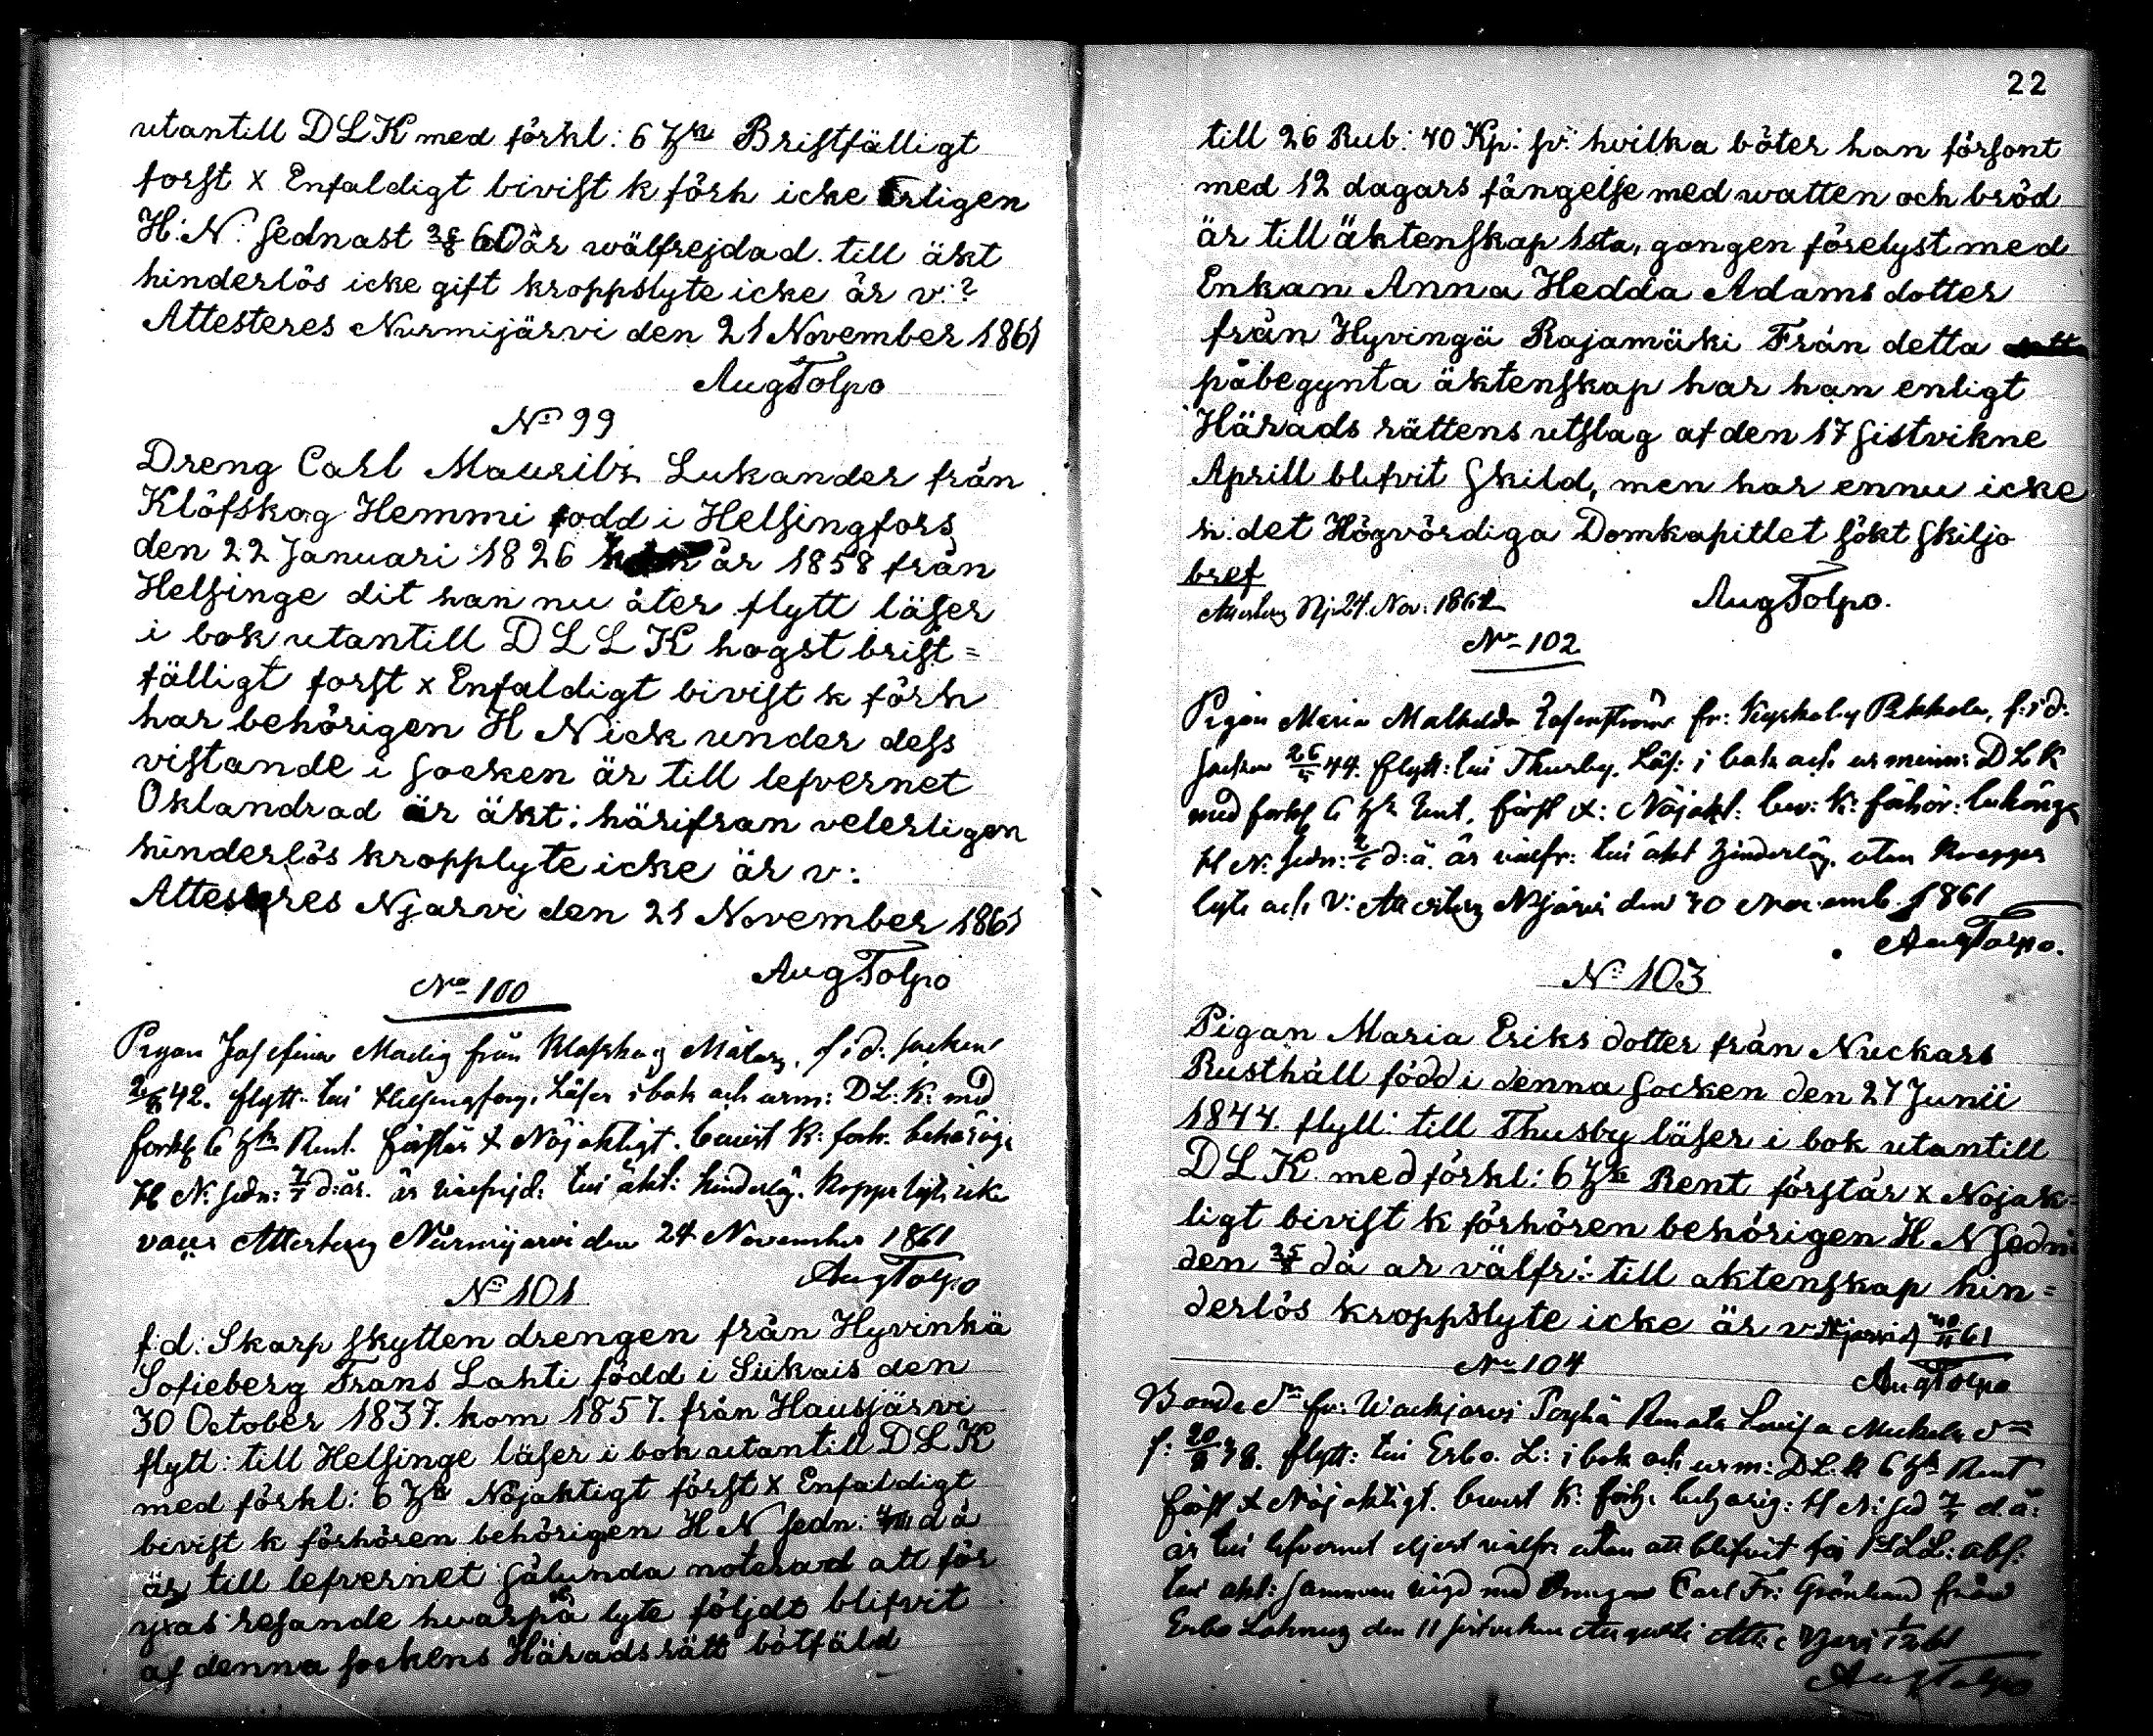 utantill DLK med förkl: 6 Bristfälligt
forst x Enfaldigt bivist k förh icke
H: N: sednast 60 år wälfrejdad till äkt
hinderlös icke gift kroppslyte icke är v:?
Attesteres Nurmijärvi den 21 November 1861
AugTolpo
No 99
Dreng Carl Mauritz Lukander från
Klöfskog Hemmi fodd i Helsingfors
den 22 Januari 1826 år 1858 från
Helsinge dit han nu åter flytt läser
i bok utantill D L L K hogst brist=
fälligt forst x Enfaldigt bivist k förh
har behörigen H N ick under dess
vistande i Socken är till lefvernet
Oklandrad är äkt: härifran veterligen
hinderlös kropplyte icke är v:
Attesteres Njarvi den 21 November 1861
AugTolpo
No 100
Pigan Josefina Malig från Klofskog Mätar, f: i d: socken
42. flytt till Helsingfors. Läser i bok och urm: DL: K: med
forkl 6 Rent. förstår x Nöjaktigt. bevist K: forh. behörige
H N: sedn: d: år. är välfrejd: till äkt: hinderlös. Kropps lyte icke
Attesteras Nurmijarvi den 24 November 1861
AugTolpo
No 101
f.d. Skarp skytten drengen från Hyvinkä
Sofieberg Frans Lahti född i Siikais den
30 October 1837. kom 1857. från Hausjärvi
flytt: till Helsinge läser i bok utantill DLK
med förkl: 6 Nöjaktigt först x Enfaldigt
bivist k förhören behörigen H N sedn: d å
är till lefvernet sålunda noterad att för
yxas resande hvarpå lyte följdt blifvit
af denna sockens Häradsrätt bötfäld
22
till 26 Rub: 40 Kp: sr: hvilka böter han försont
med 12 dagars fängelse med watten och bröd
är till äktenskap 1sta, gangen förelyst med
Enkan Anna Hedda Adams dotter
från Hyvingä Rajamäki Från detta
påbegynta äktenskap har han enligt
Härads rättens utslag af den 17 sistvikne
Aprill blifvit skild, men har ennu icke
h: det Högvördiga Domkapitlet sökt skiljo
bref
Nj. 24. Nov: 1861
AugTolpo.
No 102
Pigan Maria Mathilda fr: Pekkola, f. i d.
Socken 44. flytt: till Thusby. Läs: i bok och ur minn: DLK
med forkl 6 Rent. först x: Nöjakt: bev: K: förhör: behörige
H N: sedn: d: å. är välfr: till äkt hinderlös, utan kropps
lyte och V: Attesteras Njärvi den 30 Novemb. 1861
AugTolpo.
No 103
Pigan Maria Eriks dotter från Nuckars
Rusthåll född i denna Socken den 27 Junii
1844. flytt: till Thusby läser i bok utantill
DLK. med förkl: 6 Rent förstår x Nojak=
ligt bivist k förhören behörigen H N sedn:
den då ar välfr: till aktenskap hin=
derlös kroppslyte icke är v Njarvi d 61
AugTolpo
No 104
Bonde fr: Wackjarvi Renata Lovisa
f: 38. flytt: till Erbo. L: i bok och urm: DL: K 6 Rent
först x Nöjaktigt. bevist K: förh: behörig: H N: sed d. å:
är till lefvernet eljest välfr utan att blifvit för LL: abs:
till äkt: Samman vigd med Drengen Carl Fr: Grönlund från
Erbo den 11 sistvekne Augusti
AugTolpo